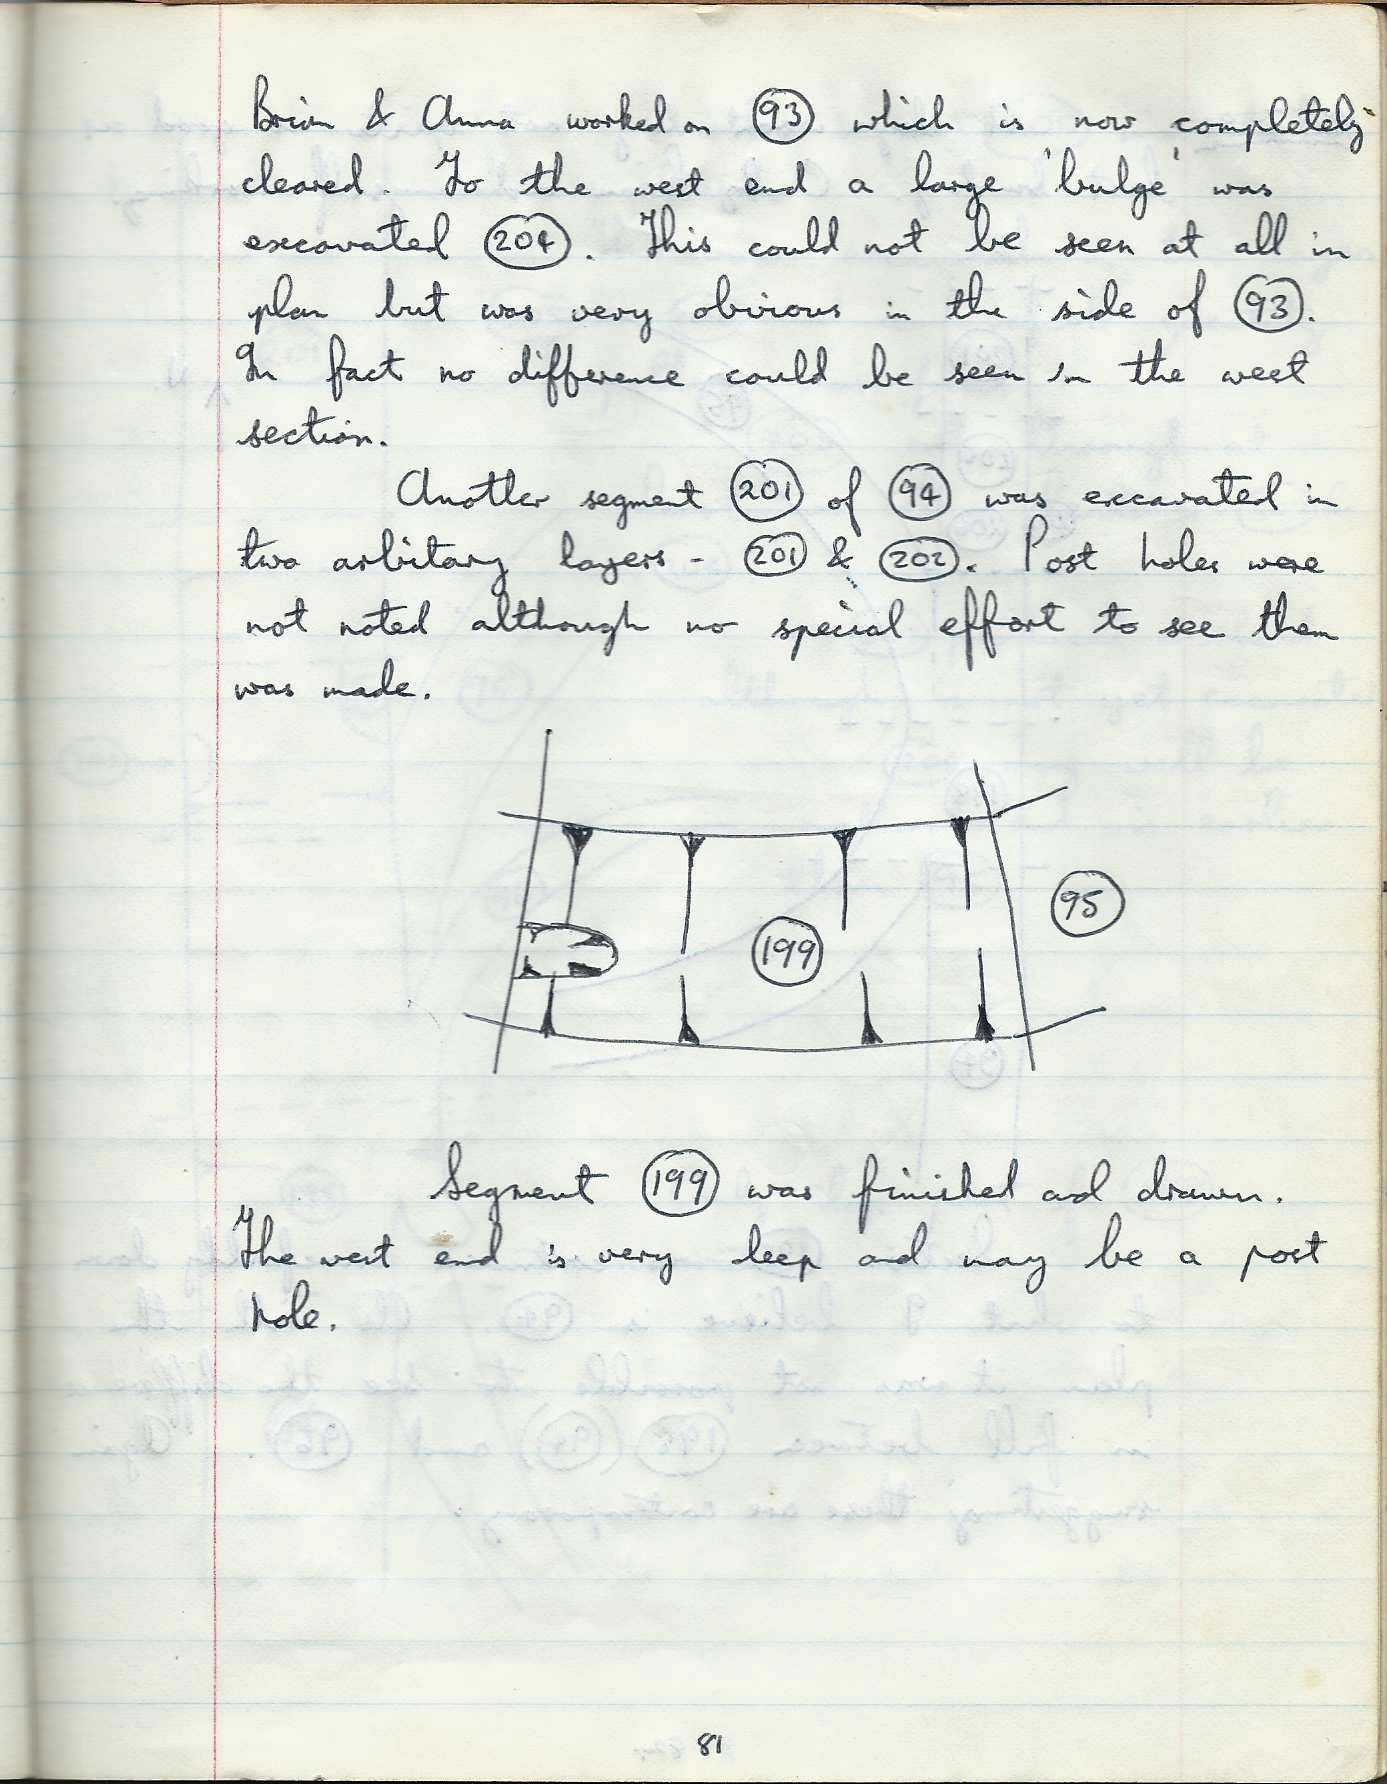 Brian & Anna worked on 93 which is now completely
cleared. To the west end a large 'bulge' was
excavated 204. This could not be seen at all in
plan but was very obvious in the side of 93.
In fact no difference could be seen in the west
section.
Another segment 201 of 94 was excavated in
two arbitary layers - 201 & 202. Post holes were
not noted although no special effort to see them
was made.
95
199
Segment 199 was finished and drawn.
The west end is very deep and may be a post
hole.
81